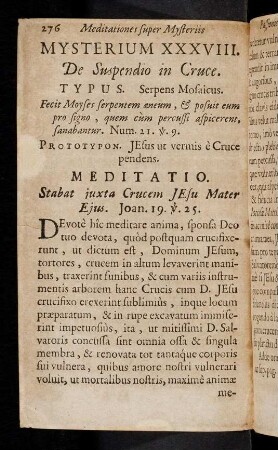 276 Meditationes super Mysteriis
MYSTERIUM XXXVIII.
De Suspendio in Cruce.
TYPUS. Serpens Mosaicus.
Fecit Moyses serpentem æneum, & posuit eum
pro signo, quem cùm percussi aspicerent,
sanabantur. Num. 21. ℣. 9.
PROTOTYPON. JEsus ut vermis è Cruce
pendens.
MEDITATIO.
Stabat juxta Crucem JEsu Mater
Ejus. Joan. 19. ℣. 25.
DEvotè hîc meditare anima, sponsa Deo
tuo devota, quòd postquam crucifixe-
runt, ut dictum est, Dominum JEsum,
tortores, crucem in altum levaverint mani-
bus, traxerint funibus, & cum variis instru-
mentis arborem hanc Crucis cum D. JEsu
crucifixo erexerint sublimiùs, inque locum
præparatum, & in rupe excavatum immise-
rint impetuosiùs, ita, ut mitissimi D. Sal-
vatoris concussa sint omnia ossa & singula
membra, & renovata tot tantaque corporis
sui vulnera, quibus amore nostri vulnerari
voluit, ut mortalibus nostris, maximè animæ
me-